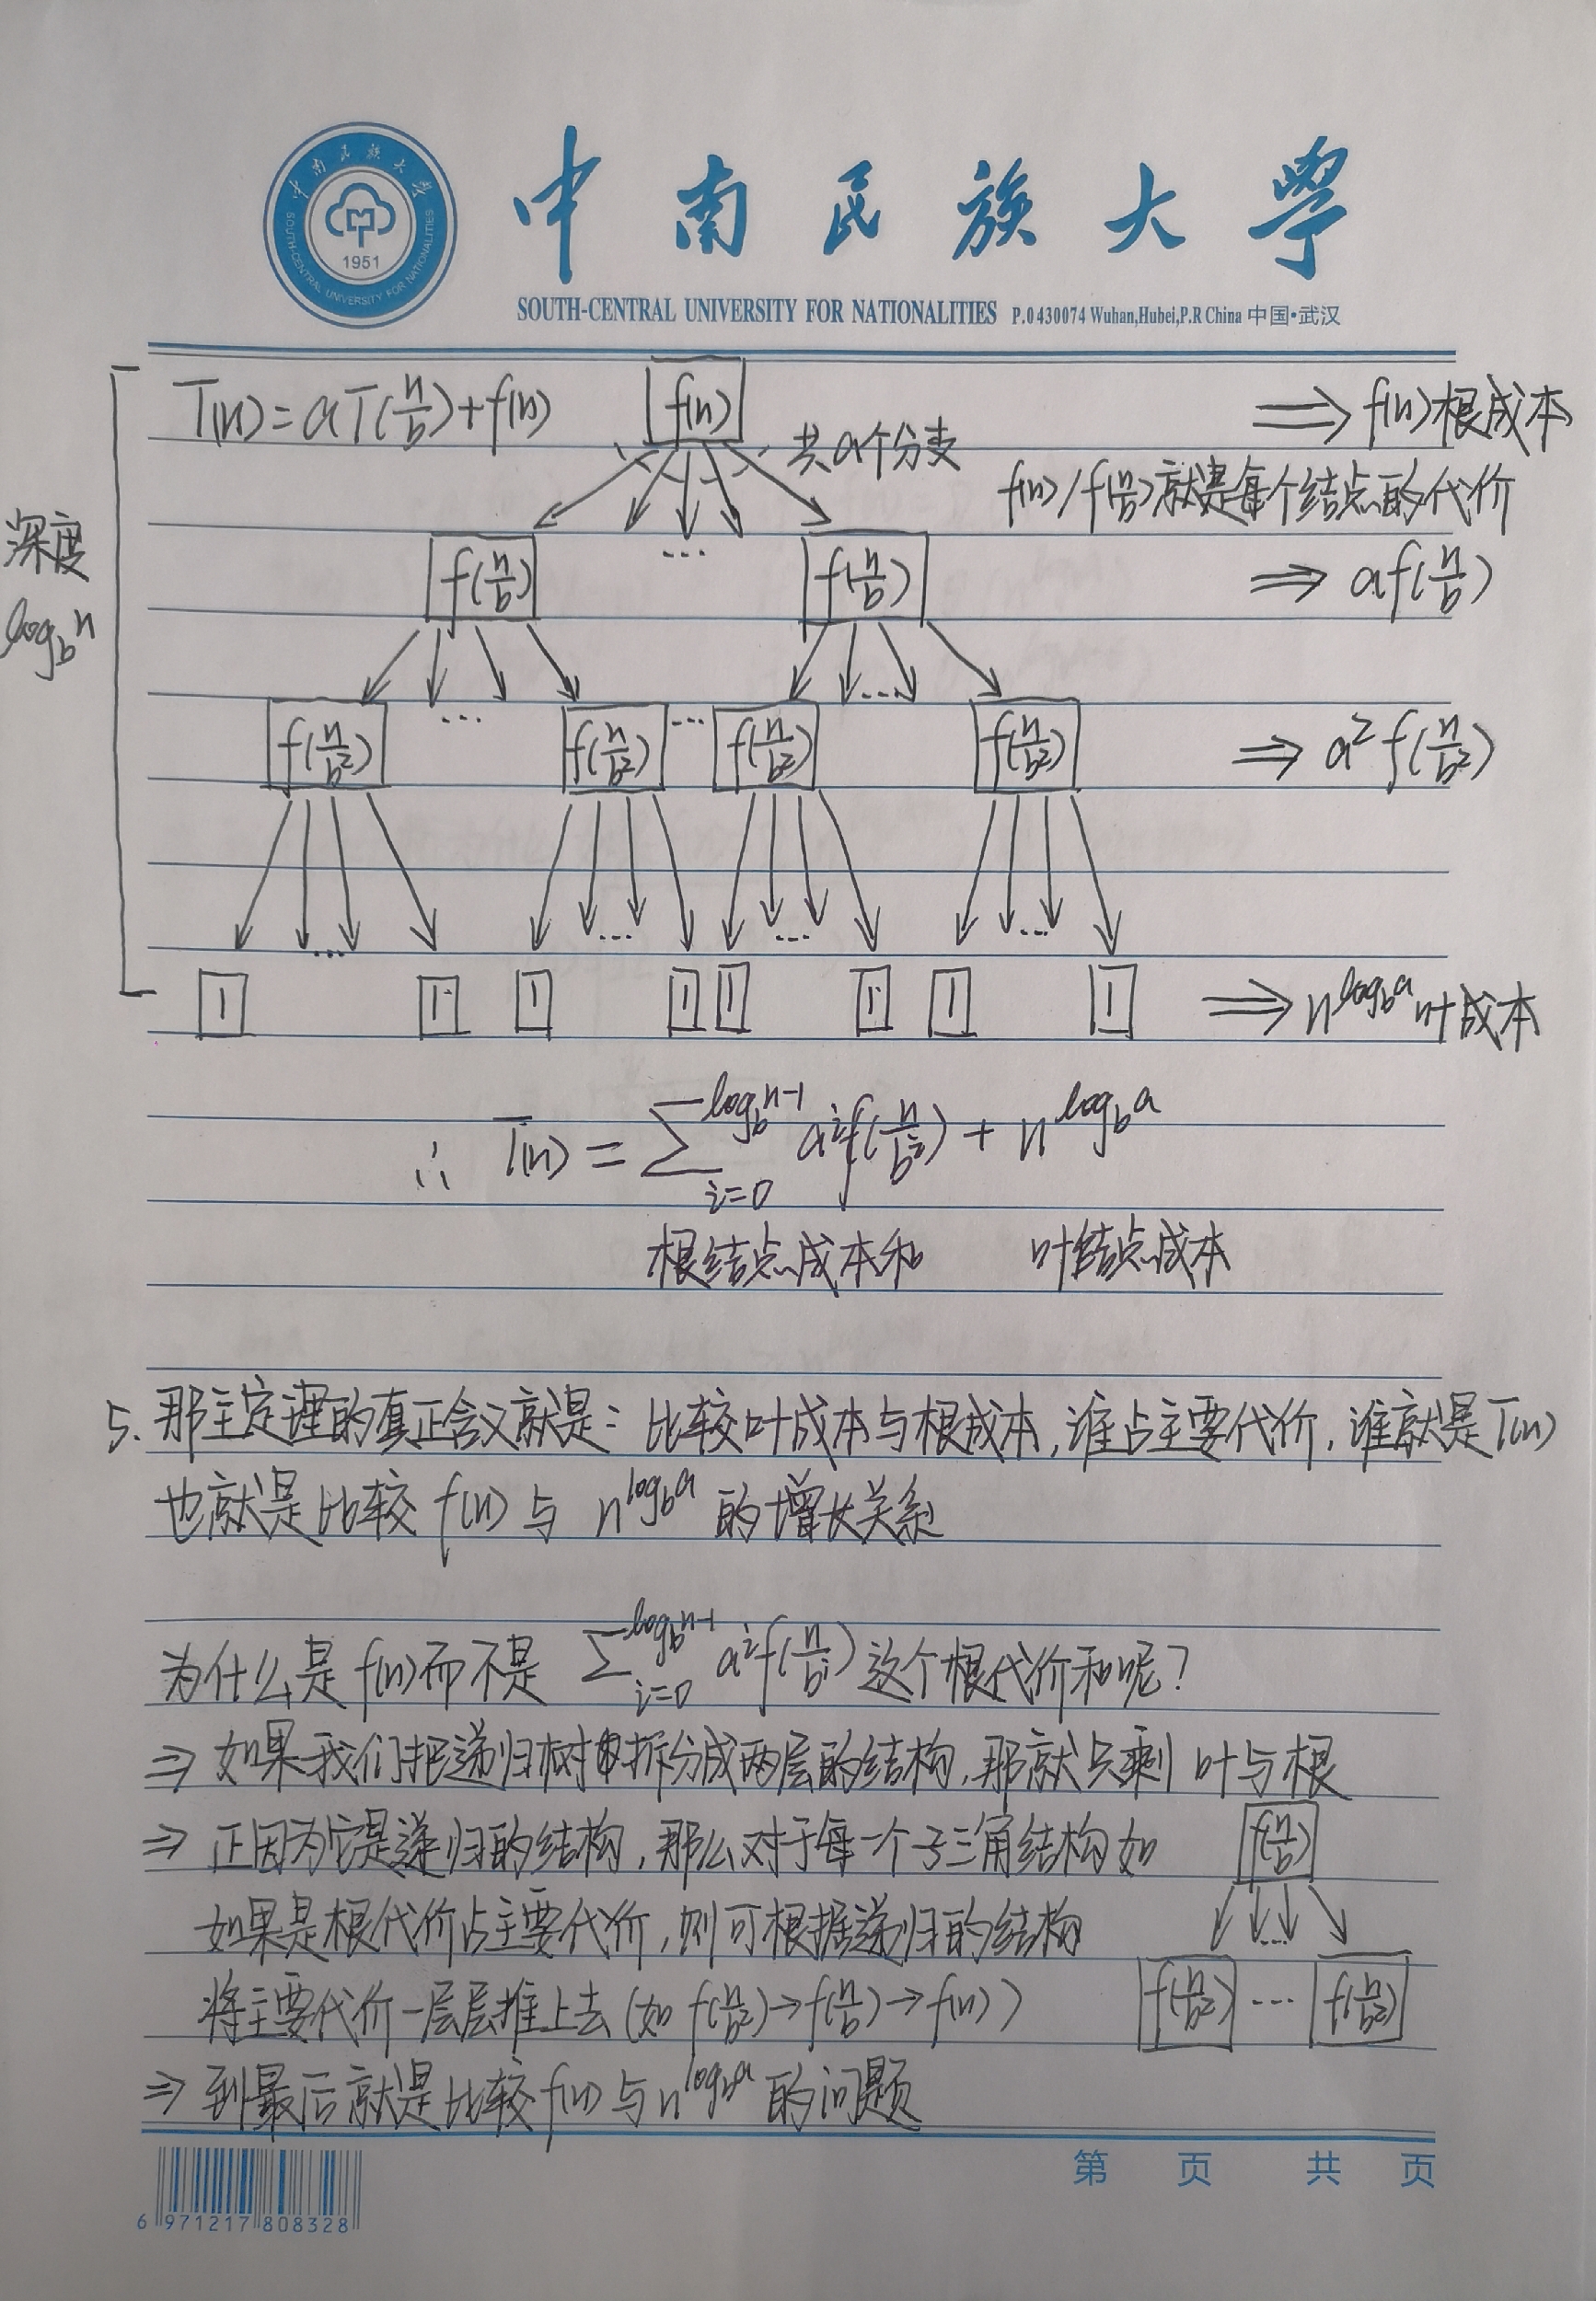 中南民族大学
SOUTH-CENTRAL UNIVERSITY FOR NATIONALITIES
1951
中南民族大學
SOUTH-CENTRAL UNIVERSITY FOR NATIONALITIES P.O430074 Wuhan,Hubei,P.R China 中国•武汉
T(n)=aT(n/b)+f(n) f(n) ⇒ f(n)根成本
共a个分支
f(n)/f(n/b)就是每个结点的代价
深度
log_b n
f(n/b) ... f(n/b) ⇒ af(n/b)
... ...
f(n/b²) f(n/b²) ... f(n/b²) f(n/b²) ⇒ a²f(n/b²)
... ... ... ...
1 1 1 1 1 1 1 1 ⇒ n^(log_b a) 叶成本
∴ T(n) = ∑_{i=0}^{log_b n-1} a^i f(n/b^i) + n^(log_b a)
根结点成本和 叶结点成本
5. 那主定理的真正含义就是：比较叶成本与根成本，谁占主要代价，谁就是T(n)
也就是比较 f(n) 与 n^(log_b a) 的增长关系
为什么是f(n)而不是 ∑_{i=0}^{log_b n-1} a^i f(n/b^i) 这个根代价和呢？
⇒ 如果我们把递归树拆分成两层的结构，那就只剩 叶与根
⇒ 正因为它是递归的结构，那么对于每一个子三角结构如 f(n/b)
如果是根代价占主要代价，则可根据递归的结构
...
将主要代价一层层推上去（如 f(n/b²)→f(n/b)→f(n)） f(n/b²) ... f(n/b²)
⇒ 到最后就是比较f(n)与n^(log_b a) 的问题
6 971217 808328
第 页 共 页